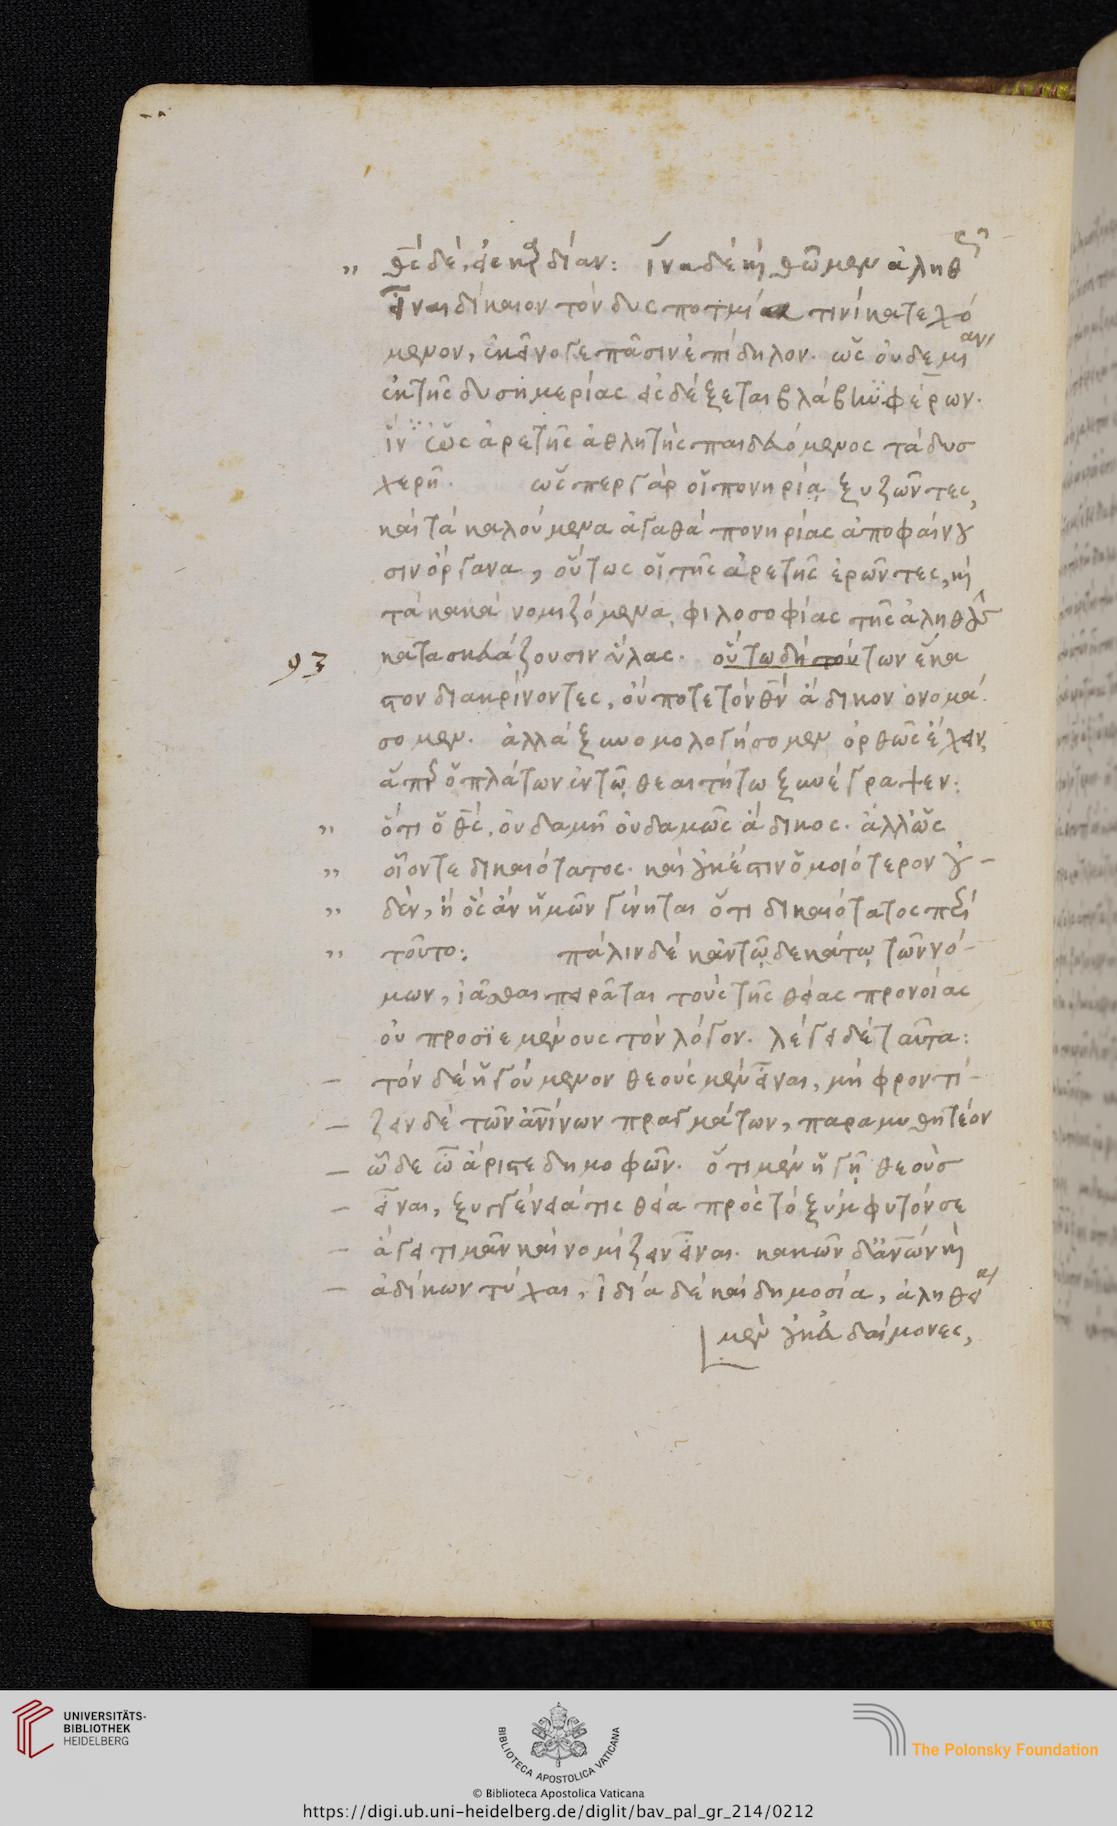 θεὸς δὲ, εἰς καρδίαν: ἵνα δὲ καὶ θῶμεν ἀληθῶς
εἶναι δίκαιον τὸν δυσποτμίᾳ τινὶ κατεχό
μενον, ἐκεῖνό γε πᾶσιν ἐπίδηλον. ὡς οὐδεμίαν
ἐκ τῆς δυσημερίας εἰσδέξεται βλάβην φέρων.
ὡς ἀρετῆς ἀθλητὴς παιδευόμενος τὰ δυσ
χερῆ. ὥσπερ γὰρ οἱ πονηρίᾳ ξυζῶντες,
καὶ τὰ καλούμενα ἀγαθὰ πονηρίας ἀποφαίνου
σιν ὄργανα, οὕτως οἱ τῆς ἀρετῆς ἐρῶντες, καὶ
τὰ κακὰ νομιζόμενα, φιλοσοφίας τῆς ἀληθοῦς
93 κατασκευάζουσιν ὕλας. οὕτω δὴ τούτων ἕκα
στον διακρίνοντες, οὔποτε τὸν θεὸν ἄδικον ὀνομά
σομεν. ἀλλὰ ξυνομολογήσομεν ὀρθῶς ἔχειν,
ἅπερ ὁ πλάτων ἐν τῷ θεαιτήτω ξυνέγραψεν:
" ὅτι ὁ θεὸς, οὐδαμῆ οὐδαμῶς ἄδικος. ἀλλ' ὡς
" οἷόν τε δικαιότατος. καὶ οὐκ ἔστιν ὁμοιότερον οὐ-
" δὲν, ἢ ὃς ἂν ἡμῶν γένηται ὅτι δικαιότατος περὶ
" τοῦτο: πάλιν δὲ κἀν τῷ δεκάτῳ τῶν νό-
μων, ἰᾶσθαι πειρᾶται τοὺς τῆς θείας προνοίας
οὐ προσϊεμένους τὸν λόγον. λέγει δὲ ταῦτα:
- τὸν δὲ ἡγούμενον θεοὺς μὲν εἶναι, μὴ φροντί-
- ζειν δὲ τῶν ἀνθρωπίνων πραγμάτων, παραμυθητέον
- ὧδε ὦ ἄριστε δημοφῶν. ὅτι μὲν ἡγῇ θεοὺσ
- εἶναι, ξυγγένειά τις θεία πρὸς τὸ ξύμφυτόν σε
- ἄγει τιμᾶν καὶ νομίζειν εἶναι. κακῶν δὲ ἀνθρώπων καὶ
- ἀδίκων τύχαι, ἰδία δὲ καὶ δημοσία, ἀληθείᾳ
μὲν οὐκ εὐδαίμονες,
UNIVERSITÄTS-
BIBLIOTHEK
HEIDELBERG
BIBLIOTECA APOSTOLICA VATICANA
The Polonsky Foundation
© Biblioteca Apostolica Vaticana
https://digi.ub.uni-heidelberg.de/diglit/bav_pal_gr_214/0212